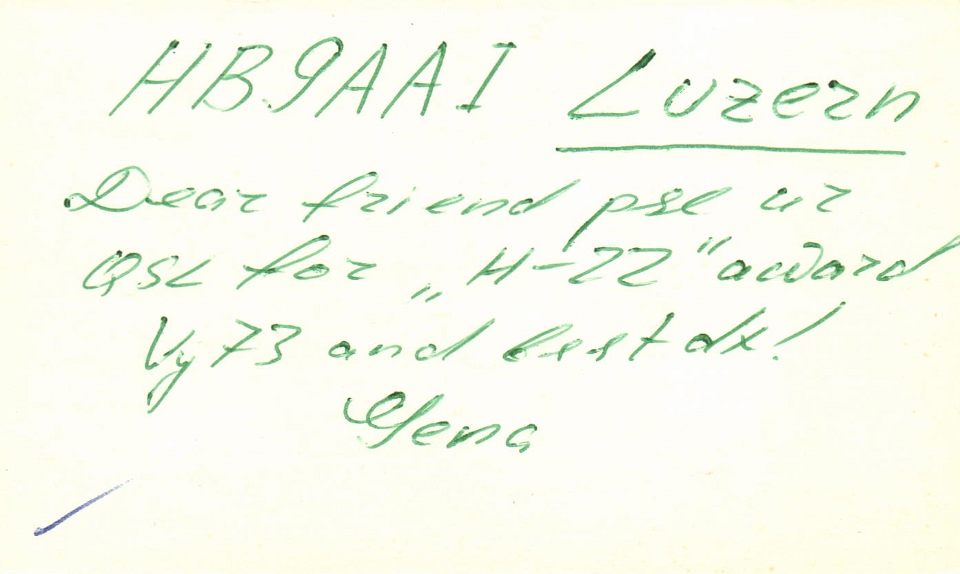 HB9AAI Luzern
Dear friend pse ur
QSL for „H-22" award
Vy 73 and best dx!
Gena